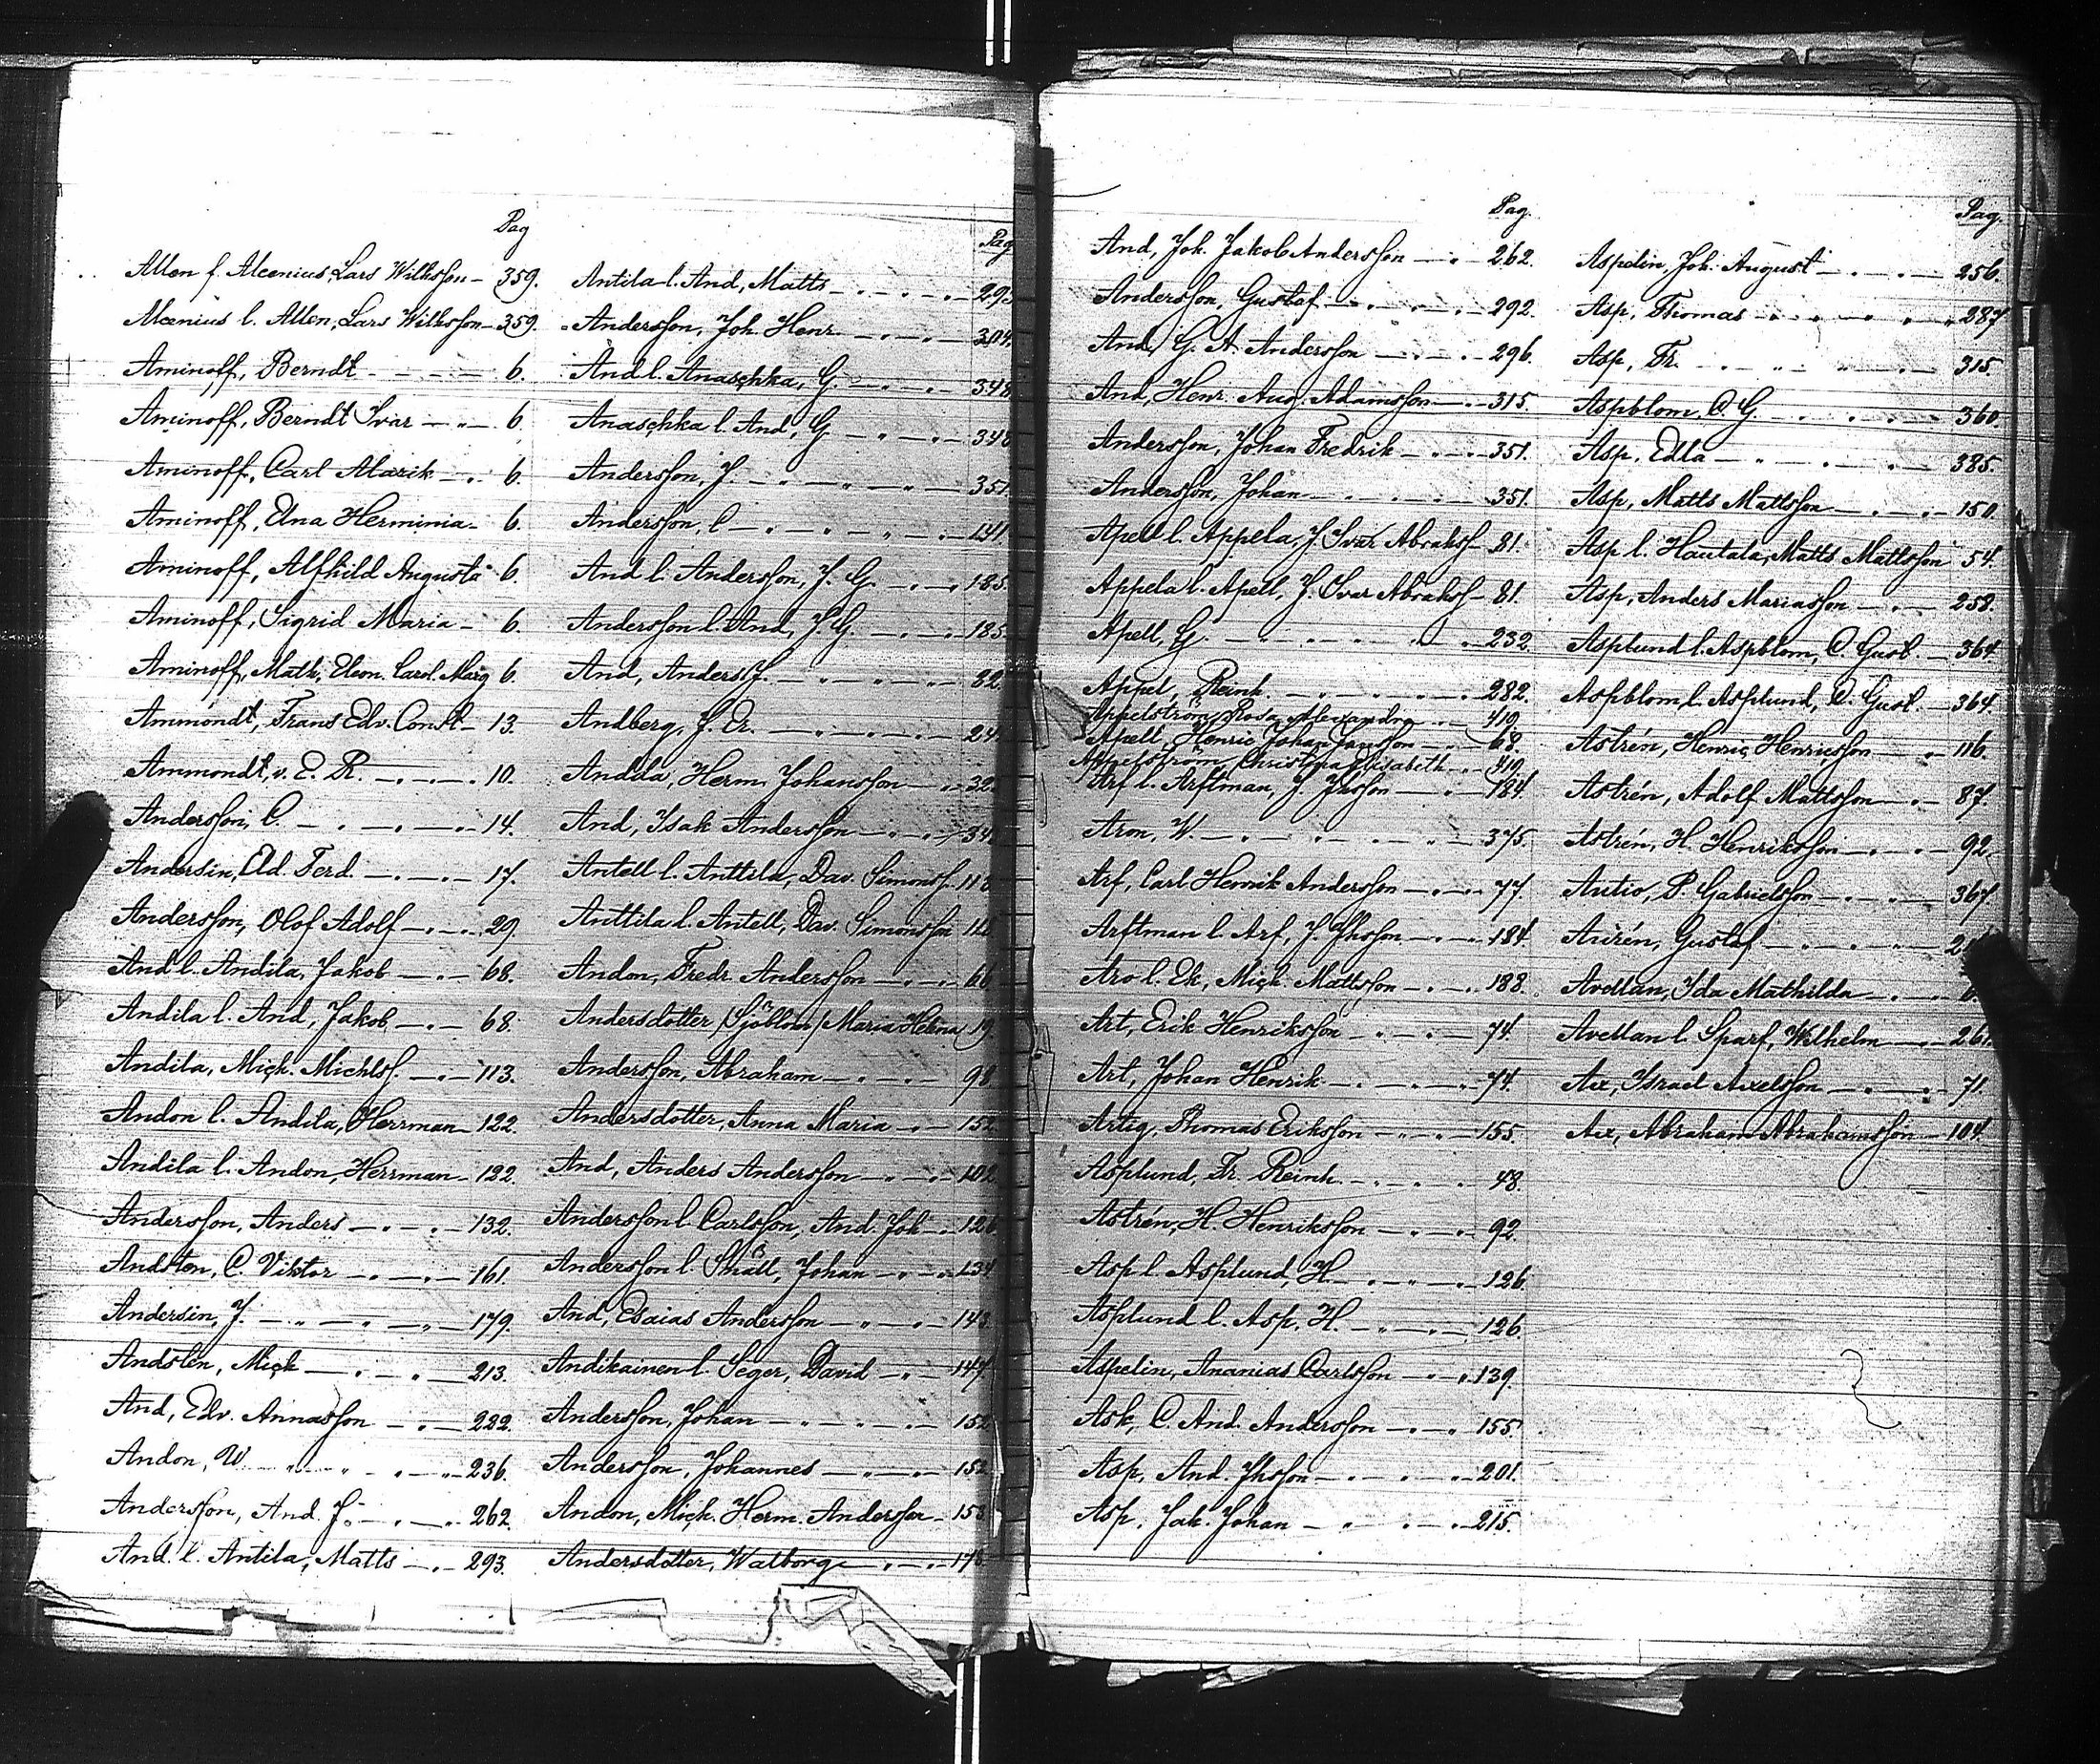 Pag
Allen f. Alcenius, Lars Wilhsson 359.
Alcenius l. Allen, Lars Wilhsson 359.
Aminoff, Berndt 6.
Aminoff, Berndt Ivar 6.
Aminoff, Carl Alarik 6.
Aminoff, Edna Herminia 6.
Aminoff, Alfhild Augusta 6.
Aminoff, Sigrid Maria 6.
Aminoff, Math. Eleon. Carol. Marg 6.
Ammondt, Frans Edv. Const. 13.
Ammondt, v. E. R. 10.
Andersson, C. 14.
Andersin, Eld. Ferd. 17.
Andersson, Olof Adolf 29.
And l. Andila, Jakob 68.
Andila l. And, Jakob 68.
Andila, Mick. Michlss. 113.
Andon l. Andila, Herrman 122.
Andila l. Andon, Herrman 122.
Andersson, Anders 132.
Andsten, C. Viktor 161.
Andersin, J. 179.
Andstén, Mick 213.
And, Edv. Annasson 222.
Andon, W. 236.
Andersson, And. J. 262.
And. l. Antila, Matts 293.
Pag
Antila l. And, Matts 293
Andersson, Joh. Henr. 304.
And l. Anaschka, G. 348
Anaschka l. And, G 348
Andersson, J. 351
Andersson, C 141
And l. Andersson, J. G. 185.
Andersson l. And, J. G. 185
And, Anders J. 82
Andberg, J. Er. 24
Andila, Herm. Johansson 32
And, Isak Andersson 34
Antell l. Anttila, Dav. Simonss. 118
Anttila l. Antell, Dav. Simonsson 118
Andon, Fredr. Andersson 66
Andersdotter /Sjöblom/ Maria Helena 19.
Andersson, Abraham 98
Andersdotter, Anna Maria 152
And, Anders Andersson 102
Andersson l. Carlsson, And. Joh 126
Andersson l. Småll, Johan 134
And, Esaias Andersson 143
Andikainen l. Seger, David 147
Andersson, Johan 152
Andersson, Johannes 152
Andon, Mick. Herm. Andersson 153
Andersdotter, Walborg 178
Pag.
And, Joh. Jakob Andersson 262.
Andersson, Gustaf 292.
And, G. A. Andersson 296.
And, Henr. Aug. Adamsson 315.
Andersson, Johan Fredrik 351.
Andersson, Johan 351.
Apell l. Appela, J. Ivar Abrahss 81.
Appela l. Apell, J. Ivar Abrahss 81.
Apell, G. 232.
Appel, Reinh. 282.
Appelström, Rosa Alexandra 419.
Apell, Henric Johan Jansson 68.
Appelström, Christina Elisabeth 419.
Arf l. Arftman, J. Jhsson 184.
Aron, W. 375.
Arf, Carl Henrik Andersson 77.
Arftman l. Arf, J. Jhsson 184
Aro l. Ek, Mick. Mattsson 188.
Art, Erik Henriksson 74.
Art, Johan Henrik 74.
Artig, Thomas Eriksson 155.
Asplund, Fr. Reinh. 48.
Astrén, H. Henriksson 92.
Asp l. Asplund, H 126.
Asplund l. Asp. H. 126
Aspelin, Ananias Carlsson 139.
Ask, C. And. Andersson 155.
Asp, And. Jhsson 201.
Asp, Jak. Johan 215.
Pag.
Aspelin, Joh. August 256.
Asp, Thomas 287
Asp, Fr. 315.
Aspblom, C. G. 360
Asp, Edla 385.
Asp, Matts Mattsson 150.
Asp l. Hautala, Matts Mattsson 54.
Asp, Anders Mariasson 258.
Asplund l. Aspblom, C. Gust. 364
Aspblom l. Asplund, C. Gust. 364.
Astrén, Henric Henricsson 116.
Astrén, Adolf Mattsson 87.
Astrén, H. Henriksson 92.
Autio, P. Gabrielsson 367.
Aurén, Gustaf
Avellan, Ida Mathilda 6
Avellan l. Sparf, Wilhelm 261.
Ax, Israel Axelsson 71.
Ax, Abraham Abrahamsson 104.